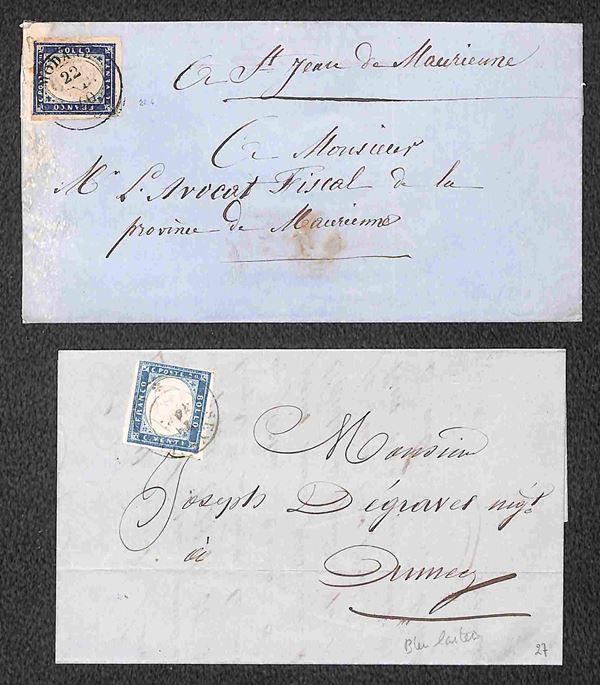 C. POSTE 20
BOLLO
C. VENTI
FRANCO
MODANE
22
A St Jean de Maurienne
A Monsieur
Mr L'Avocat Fiscal de la
province de Maurienne
C. POSTE 20
FRANCO
BOLLO
C. VENTI
Monsieur
Joseph Dégraves négt
à
Annecy
Bleu
27